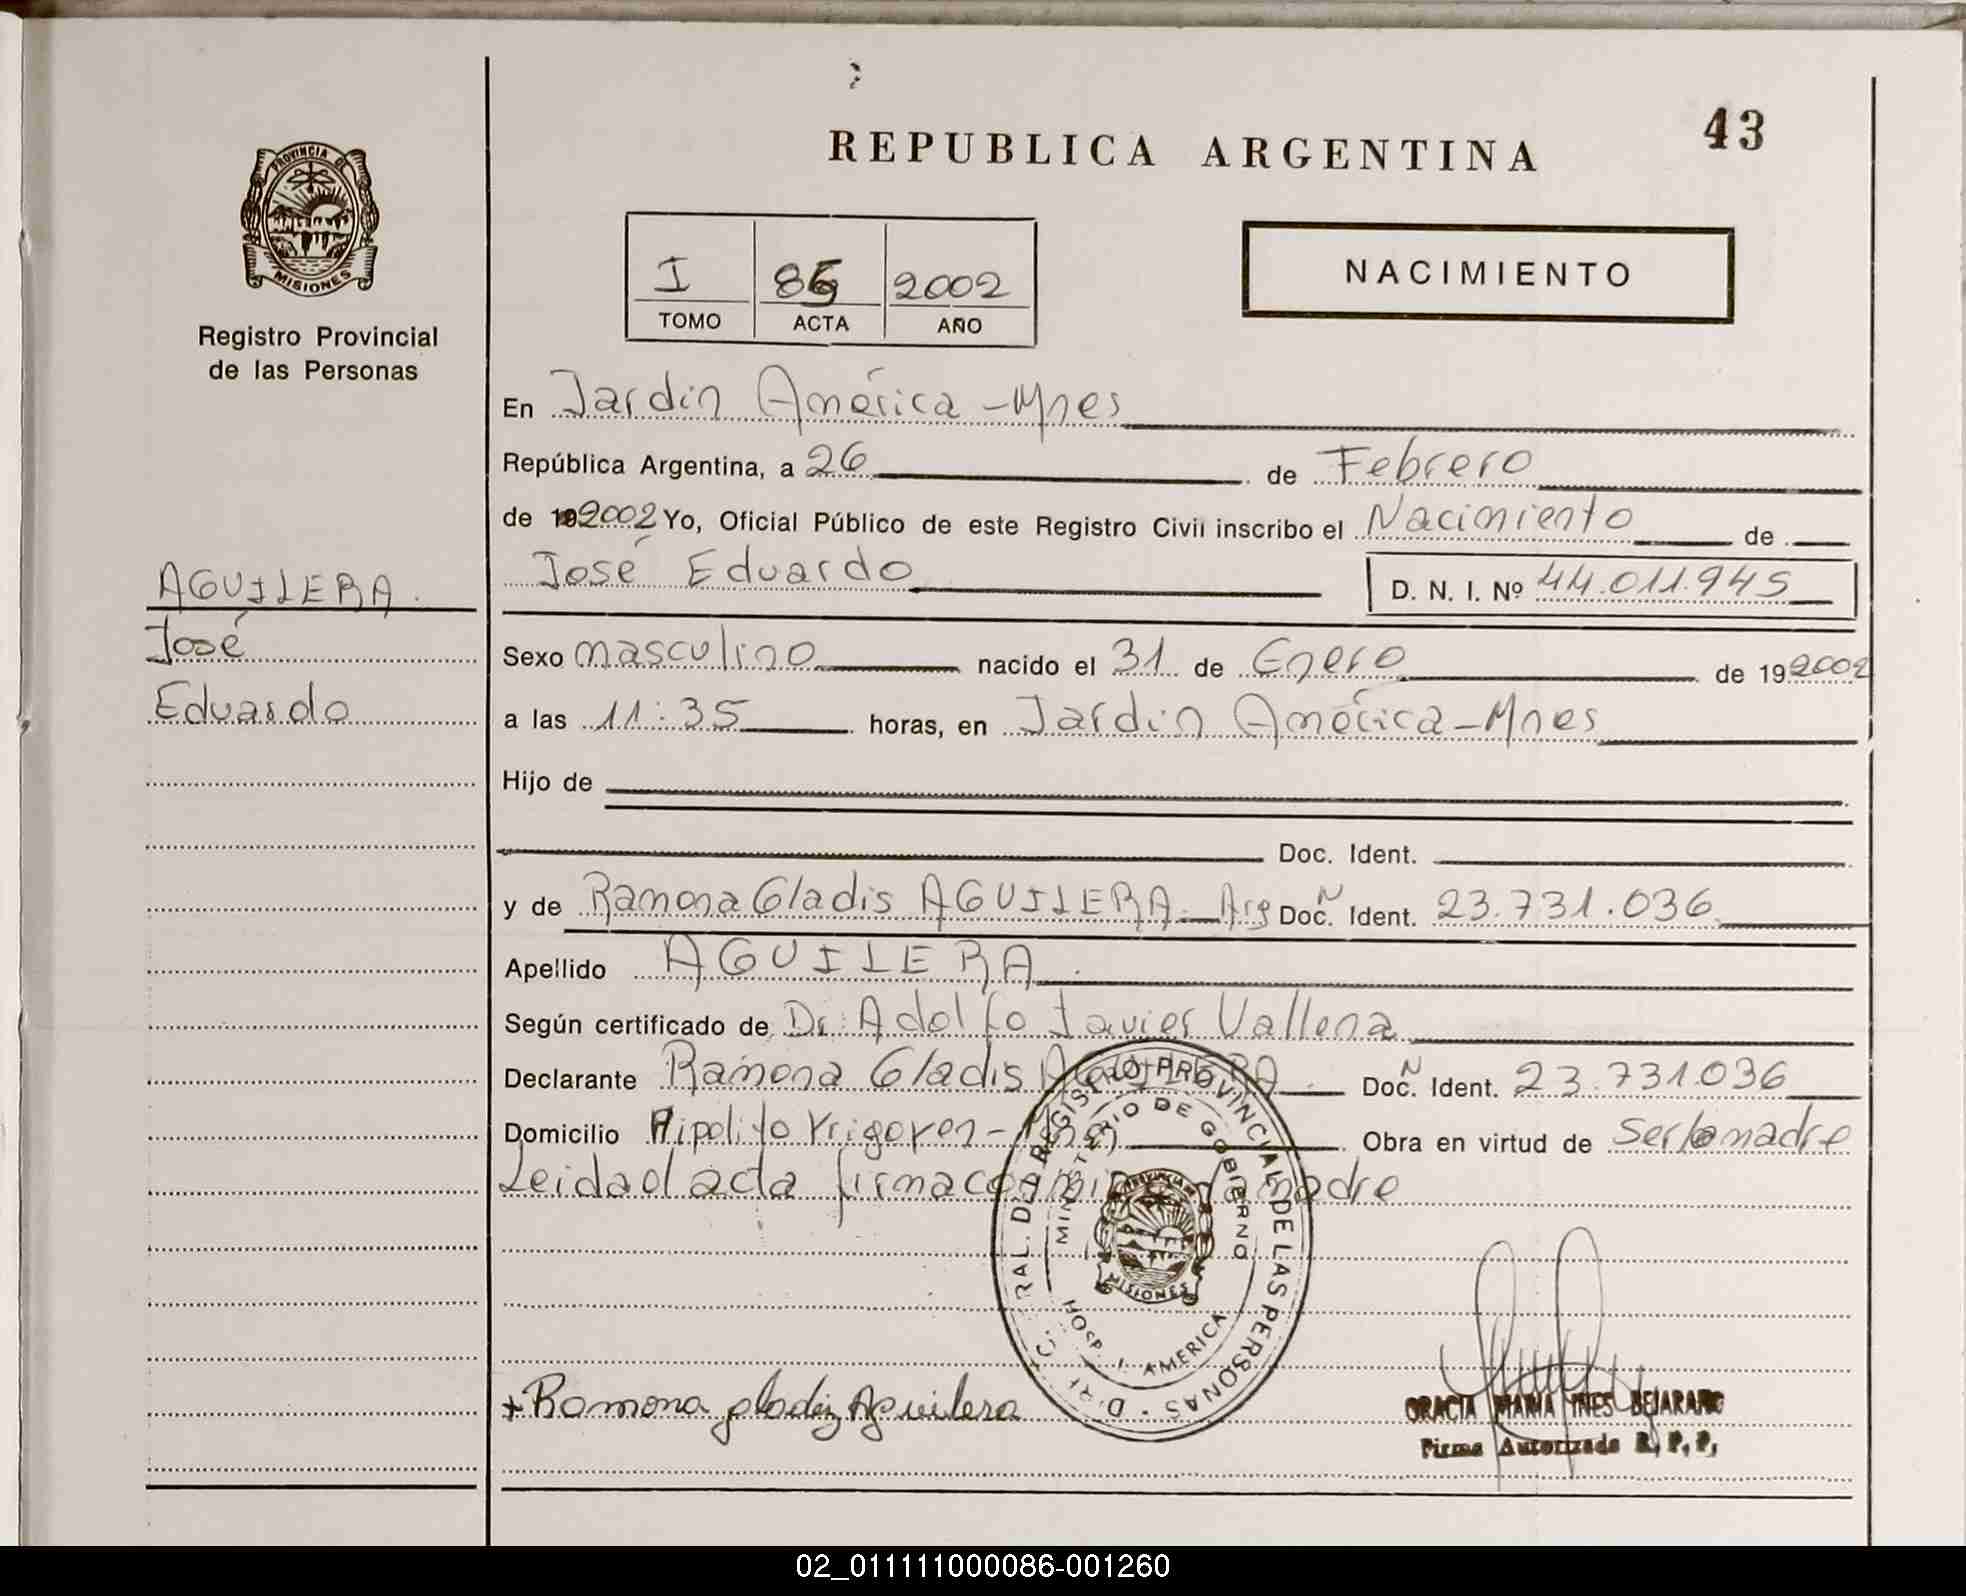 43
REPUBLICA ARGENTINA
PROVINCIA DE
MISIONES
Registro Provincial
de las Personas
NACIMIENTO
I 86 2002
TOMO ACTA AÑO
En Jardin América - Mnes
República Argentina, a 26 de Febrero
de 19 2002 Yo, Oficial Público de este Registro Civil inscribo el Nacimiento de
José Eduardo D. N. I. Nº 44.011.945
AGUILERA.
José
Eduardo
Sexo masculino nacido el 31 de Enero de 19 2002
a las 11:35 horas, en Jardin América - Mnes
Hijo de
Doc. Ident.
y de Ramona Gladis AGUILERA. Arg Doc. N Ident. 23.731.036
Apellido AGUILERA.
Según certificado de Dr. Adolfo Javier Vallena
Declarante Ramona Gladis AGUILERA. Doc. N Ident. 23.731.036
Domicilio Hipolito Yrigoyen - Mnes Obra en virtud de Ser la madre
Leida el acta firma conmigo la madre
REGISTRO PROVINCIAL DE LAS PERSONAS
MINISTERIO DE GOBIERNO
PROVINCIA DE
MISIONES
HOSP. J. AMERICA
+ Ramona gladiz Aguilera
GRACIA MARIA INES BEJARANO
Firma Autorizada R. P. P.
02_011111000086-001260